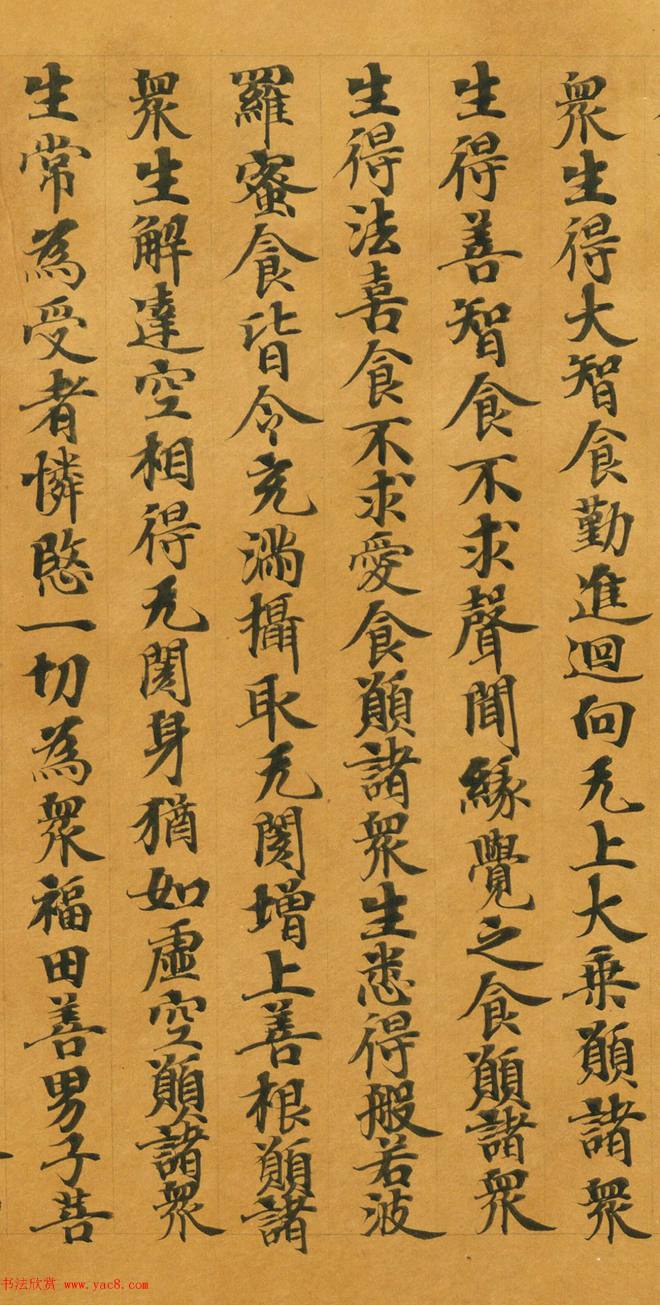 眾生得大智食勤進迴向无上大乗願諸眾
生得善智食不求聲聞緣覺之食願諸眾
生得法喜食不求愛食願諸眾生悉得般若波
羅蜜食皆令充滿攝取无閡增上善根願諸
眾生解達空相得无閡身猶如虛空願諸眾
生常為受者憐愍一切為眾福田善男子菩
书法欣赏 www.yac8.com